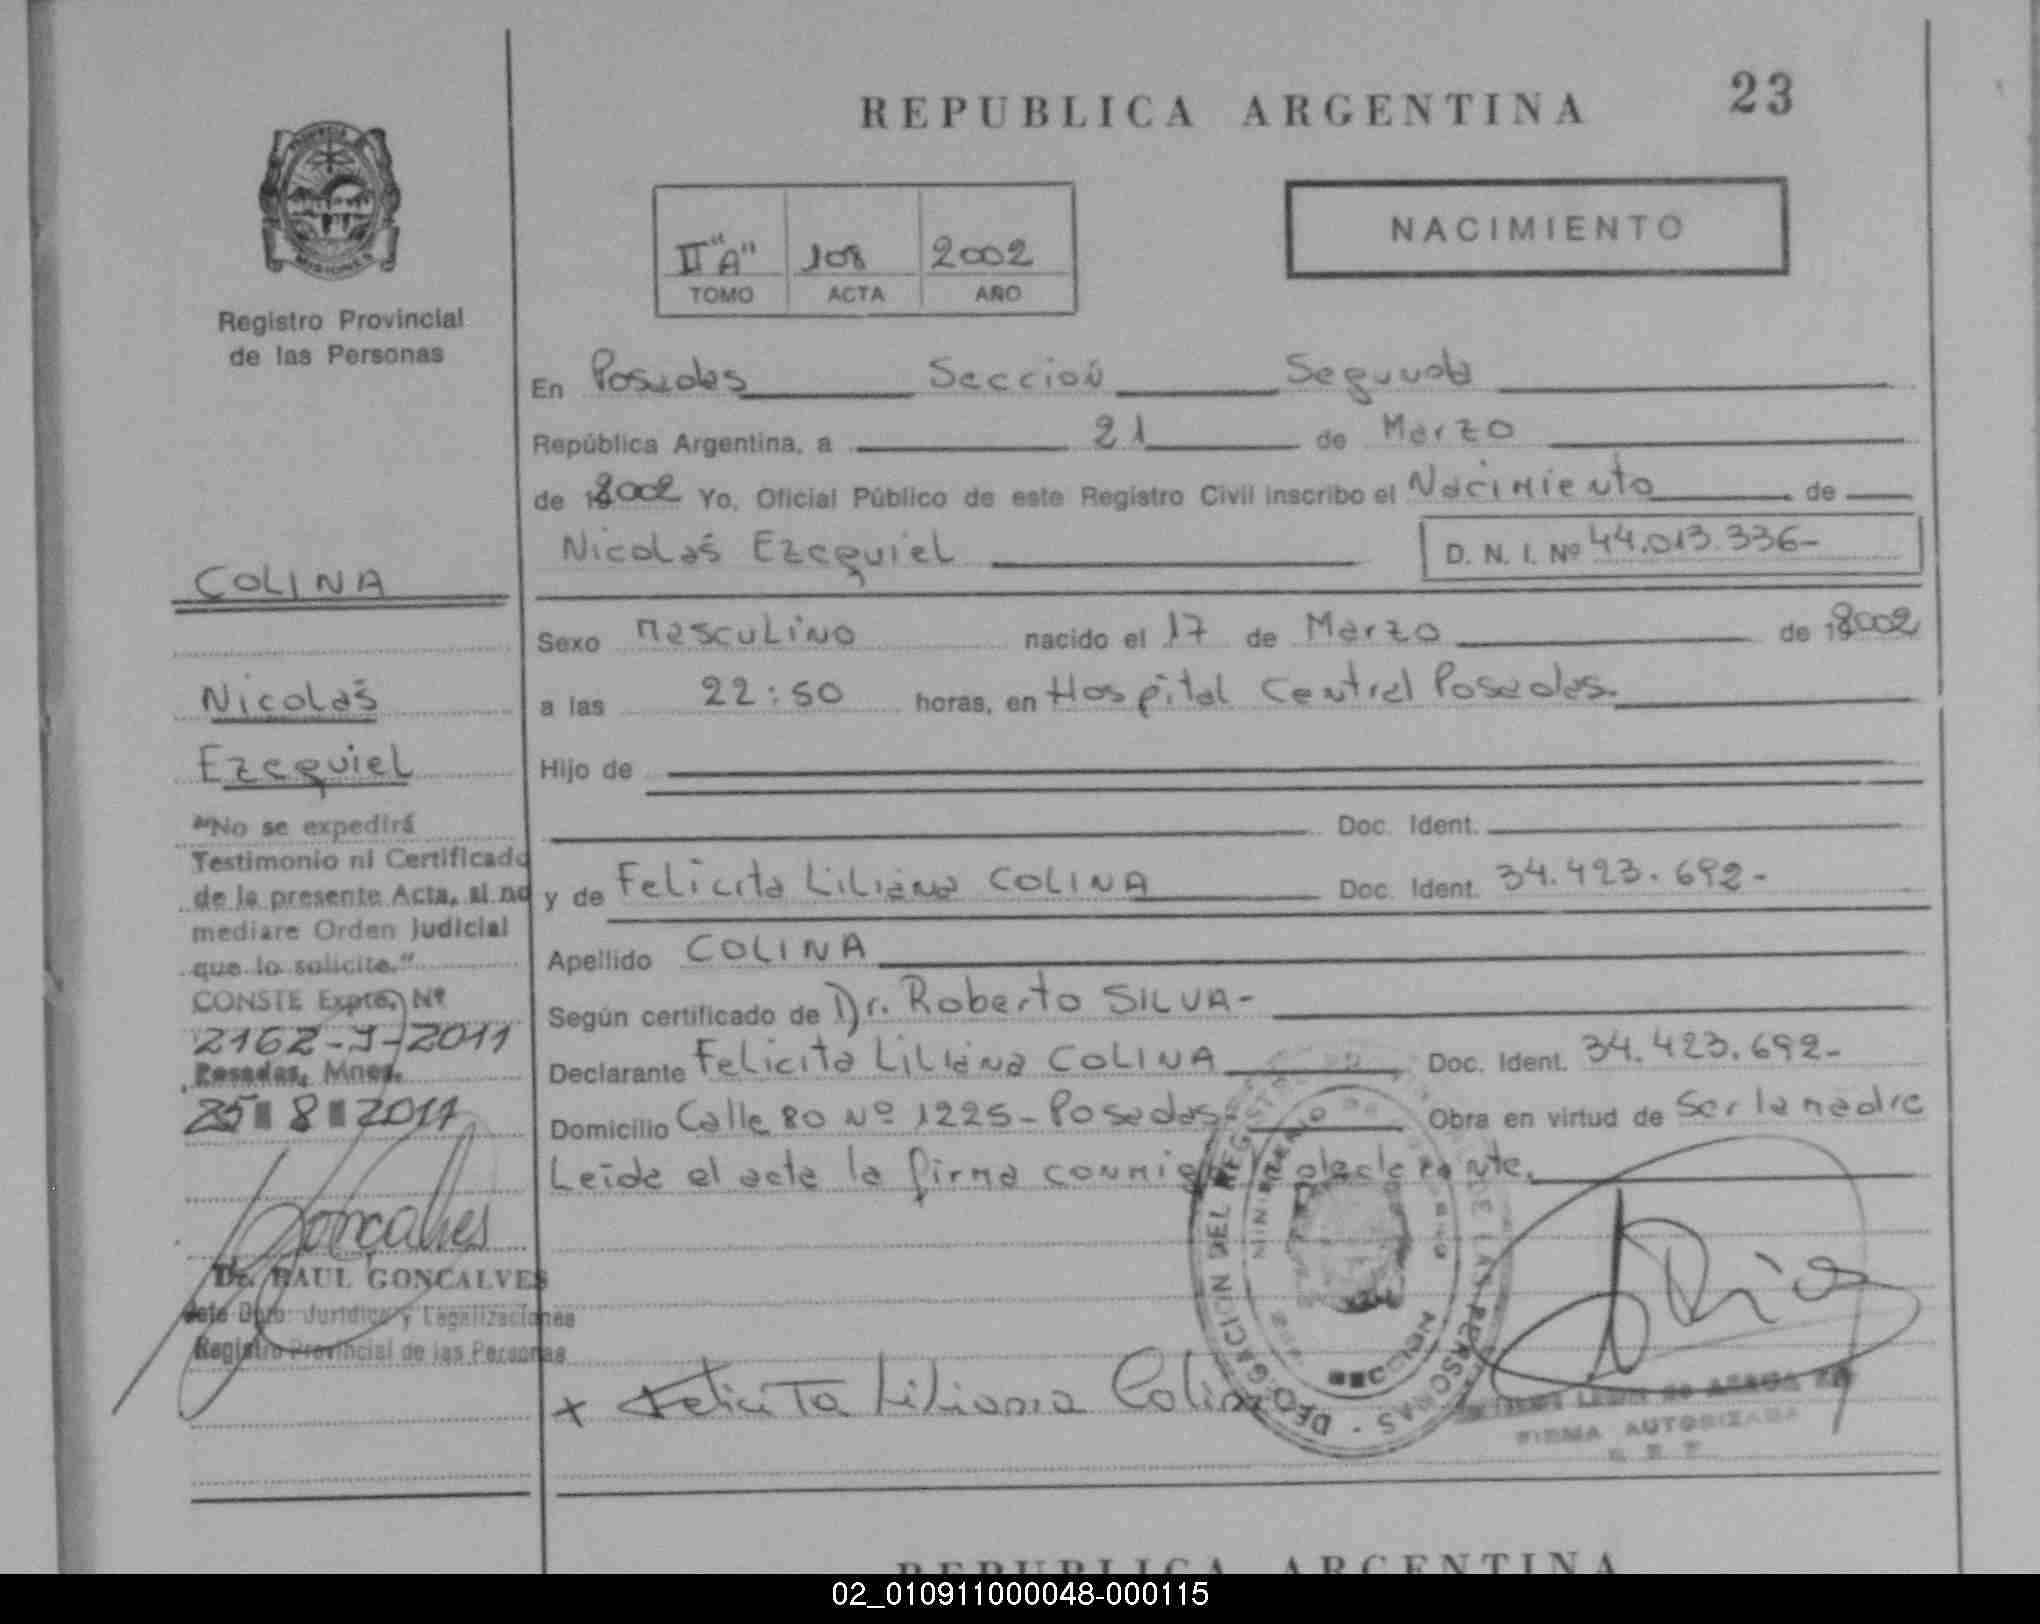 REPUBLICA ARGENTINA 23
II "A" 108 2002
TOMO ACTA AÑO
NACIMIENTO
MISIONES
Registro Provincial
de las Personas
En Posadas Sección Segunda
República Argentina, a 21 de Marzo
de 2002 Yo, Oficial Público de este Registro Civil inscribo el Nacimiento de
Nicolás Ezequiel D. N. I. Nº 44.013.336-
COLINA
Sexo Masculino nacido el 17 de Marzo de 2002
Nicolás
a las 22:50 horas, en Hospital Central Posadas.
Ezequiel
Hijo de
Doc. Ident.
"No se expedirá
Testimonio ni Certificado
de la presente Acta, si no
mediare Orden Judicial
que lo solicite."
CONSTE Expte. Nº
2162-J-2011
Posadas, Mnes.
25 8 2011
y de Felicita Liliana COLINA Doc. Ident. 34.423.692-
Apellido COLINA
Según certificado de Dr. Roberto SILVA-
Declarante Felicita Liliana COLINA Doc. Ident. 34.423.692-
Domicilio Calle 80 Nº 1225-Posadas Obra en virtud de Ser la madre
Leida el acta la firma conmigo declarante.
Goncalves
Dr. RAUL GONCALVES
Jefe Dpto. Jurídico y Legalizaciones
Registro Provincial de las Personas
DELEGACION DEL REGISTRO DE LAS PERSONAS
MINISTERIO DE GOBIERNO
x Felicita Liliana Colina
FIRMA AUTORIZADA
REPUBLICA ARGENTINA
02_010911000048-000115